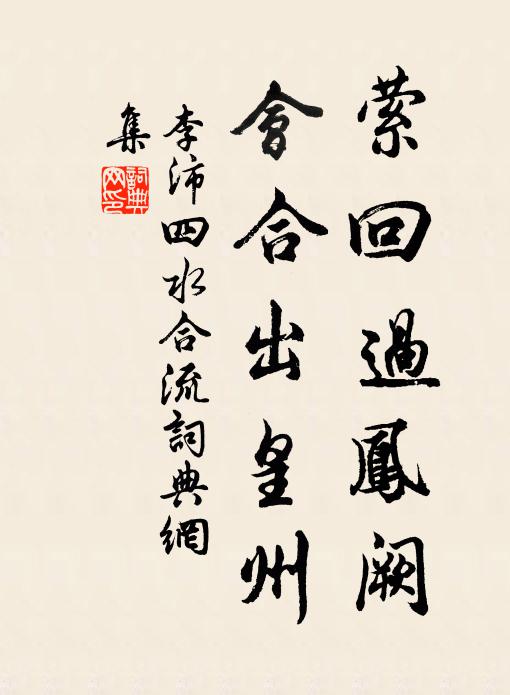 萦回過鳳阙
會合出皇州
李沛四水合流詞典網
集
詞典网印